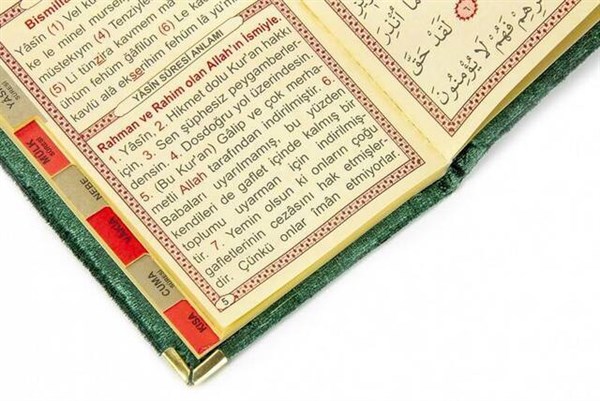 Bismillâ
Yâsîn (1) Vel ku
ke le minel mursel
müstekıym (4) Tenziyle
(5) Li tünzira kavmem mâ
ühüm fehüm ğâfilûn (6) Le kad
kavlü alâ ekserihim fehüm lâ yu'm
YÂSİN SÛRESİ ANLAMI
Rahman ve Rahim olan Allah'ın ismiyle.
1. Yâsîn, 2. Hikmet dolu Kur'an hakkı
için, 3. Sen şüphesiz peygamberler-
densin. 4. Dosdoğru yol üzerindesin.
5. (Bu Kur'an) Gâlip ve çok merha-
metli Allah tarafından indirilmiştir. 6.
Babaları uyarılmamış, bu yüzden
kendileri de gaflet içinde kalmış bir
toplumu uyarman için indirilmiş-
tir. 7. Yemin olsun ki onların çoğu
gafletlerinin cezâsını hak etmişler-
dir. Çünkü onlar îman etmiyorlar.
5
YASİN
SÛRESİ
MÜLK
SÛRESİ
NEBE
VAKIA
CUMA
SÛRESİ
KISA
لَقَدْ حَقَّ
فَهُمْ لَا يُؤْمِنُونَ